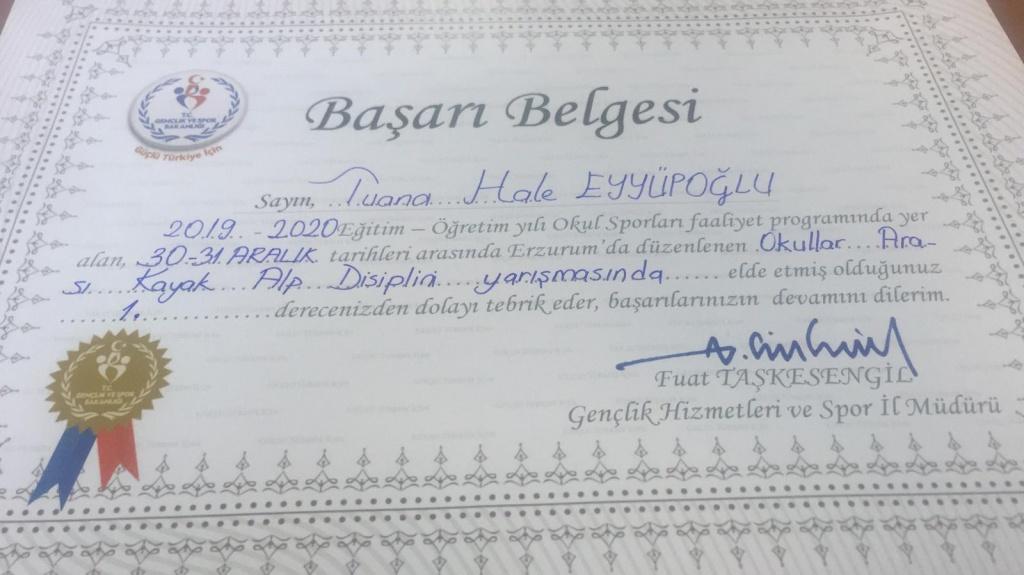 T.C.
GENÇLİK VE SPOR
BAKANLIĞI
Güçlü Türkiye İçin
Başarı Belgesi
Sayın, Tuana Hale EYYÜPOĞLU
2019 - 2020 Eğitim – Öğretim yılı Okul Sporları faaliyet programında yer
alan, 30-31 ARALIK tarihleri arasında Erzurum'da düzenlenen Okullar Ara-
sı Kayak Alp Disiplini yarışmasında elde etmiş olduğunuz
1. derecenizden dolayı tebrik eder, başarılarınızın devamını dilerim.
Fuat TAŞKESENGİL
Gençlik Hizmetleri ve Spor İl Müdürü
T.C.
GENÇLİK VE SPOR
BAKANLIĞI